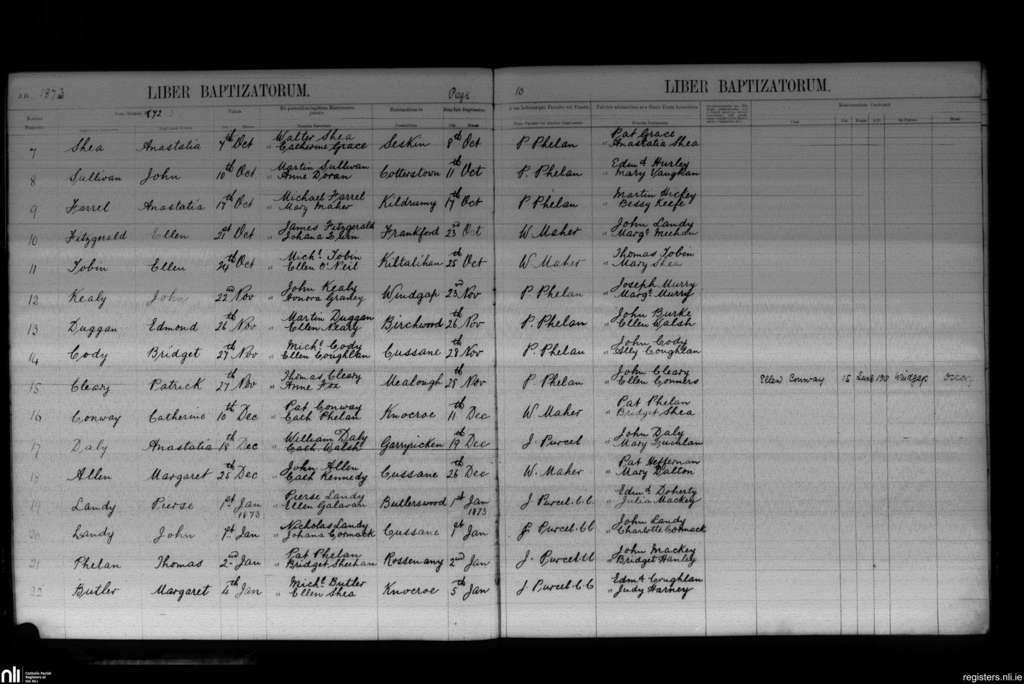 A.D. 1873 LIBER BAPTIZATORUM. Page
10 LIBER BAPTIZATORUM.
1872
7 Shea Anastatia 7th Oct Walter Shea Seskin 8th Oct P Phelan Pat Grace
" Catherine Grace " Anastatia Shea
8 Sullivan John 10th Oct Martin Sullivan Cotterstown 11th Oct P. Phelan Edmd Hurley
" Anne Doran " Mary Vaughan
9 Farrel Anastatia 17th Oct Michael Farrel Kildrumy 17th Oct P Phelan Martin
" Mary Maher " Bessy Keefe
10 Fitzgerald Ellen Oct James Fitzgerald Frankford 23rd Oct W Maher John Landy
" Johana " Margt
11 Tobin Ellen 24th Oct Michl Tobin Kiltalihan 25th Oct W Maher Thomas Tobin
" Ellen O'Neil " Mary Shea
12 Kealy John 22nd Nov John Kealy Windgap 23rd Nov P Phelan Joseph Murry
" Honora " Margt Murry
13 Duggan Edmond 26th Nov Martin Duggan Birchwood 26th Nov P. Phelan John Burke
" Ellen Neary " Ellen Walsh
14 Cody Bridget 27th Nov Michl Cody Cussane 28th Nov P Phelan John Cody
" Ellen Coughlan " Coughlan
15 Cleary Patrick 27th Nov Thomas Cleary Mealough 28th Nov P Phelan John Cleary Ellen Conway 15 Windgap
" Anne Fox " Ellen Conners
16 Conway Catherine 10th Dec Pat Conway Knocroe 11th Dec W Maher Pat Phelan
" Cath Phelan " Bridget Shea
17 Daly Anastatia 18th Dec William Daly Garryricken 19th Dec J Purcel John Daly
" Cath Walsh " Mary
18 Allen Margaret 25th Dec John Allen Cussane 26th Dec W. Maher Pat Heffernan
" Cath Kennedy " Mary Dalton
19 Landy Pierse 1st Jan 1873 Pierse Landy Butlerswood 1st Jan 1873 J Purcel CC Edmd Doherty
" Ellen Galavan " Julia Mackey
20 Landy John 1st Jan Nicholas Landy Cussane 1st Jan J. Purcel CC John Landy
" Johana Cormack " Charlotte Cormack
21 Phelan Thomas 2nd Jan Pat Phelan Rossenany 2nd Jan J. Purcel CC John Mackey
" Bridget Sheehan " Bridget Hanley
22 Butler Margaret 4th Jan Michl Butler Knocroe 5th Jan J Purcel CC Edmd Coughlan
" Ellen Shea " Judy Harney
nli
Catholic Parish
Registers at
the NLI
registers.nli.ie